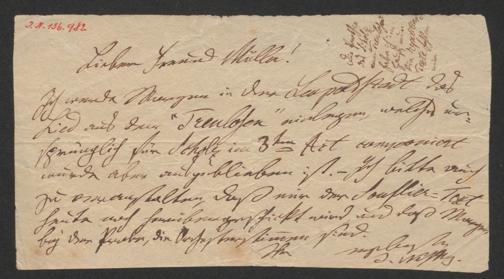 I.N. 136.982
Lieber Freund Müller!
Ich werde Morgen in der Leopoldstadt das
Lied aus dem "Treulosen" einlegen welches ur-
sprünglich für Scholz im 3ten Act componirt
wurde aber ausgeblieben ist. – Ich bitte auch
zu veranstalten daß mir der Soufflier-Text
heute noch hereingeschickt wird und daß Morgen
bey der Probe, die Orchesterstimmen sind.
Ihr
J. Nestroy